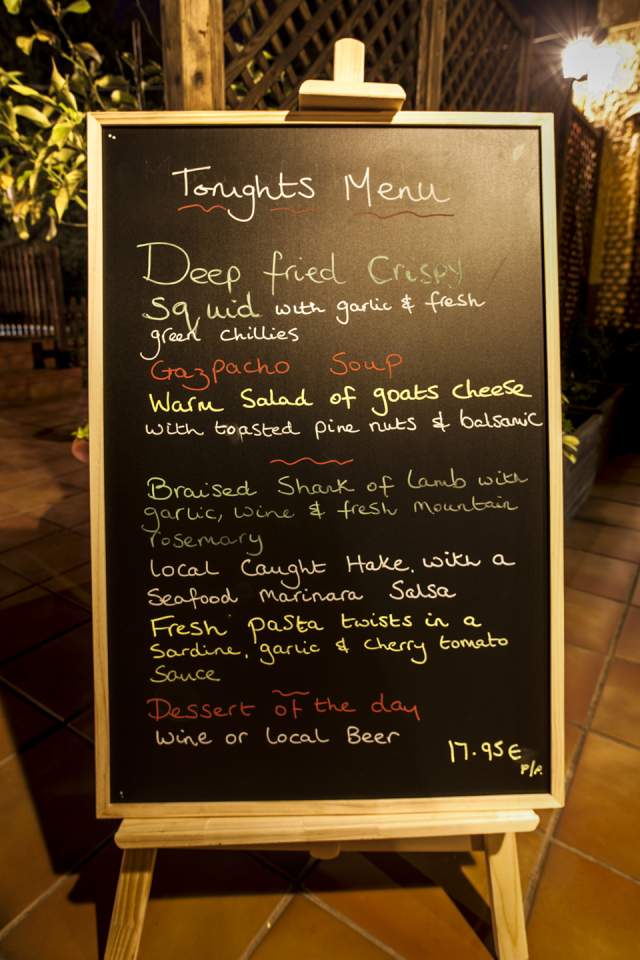 Tonights Menu
Deep fried Crispy
Squid with garlic & fresh
green chillies
Gazpacho Soup
Warm Salad of goats cheese
with toasted pine nuts & balsamic
Braised Shank of Lamb with
garlic, wine & fresh mountain
rosemary
Local Caught Hake, with a
Seafood Marinara Salsa
Fresh pasta twists in a
Sardine, garlic & cherry tomato
Sauce
Dessert of the day
Wine or Local Beer
17.95€
P/P.